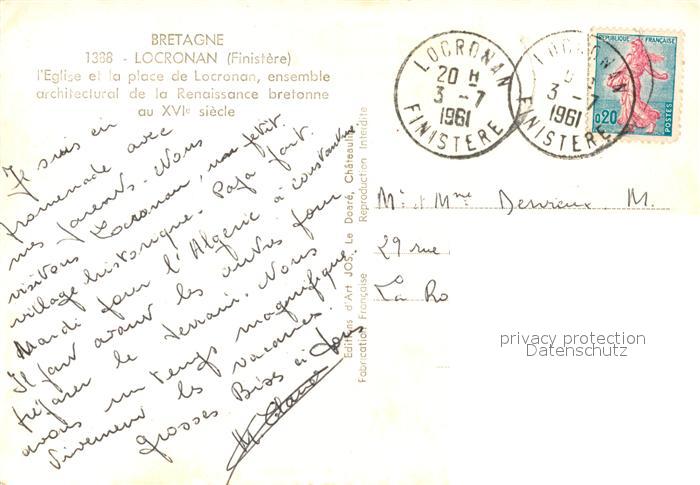 BRETAGNE
1388 - LOCRONAN (Finistère)
l'Eglise et la place de Locronan, ensemble
architectural de la Renaissance bretonne
au XVIe siècle
Je suis en
promenade avec
mes parents. Nous
visitons Locronan, un petit
village historique. Papa part
Mardi pour l'Algérie à Constantine.
Il part avant les autres pour
préparer le terrain. Nous
avons un temps magnifique.
Vivement les vacances!
grosses Bises à tous
M. Claude
Editions d'Art JOS, Le Doaré, Châteaulin
Fabrication Française Reproduction Interdite
LOCRONAN
20 H
3 - 7
1961
FINISTERE
LOCRONAN
3 - 7
1961
FINISTERE
REPUBLIQUE FRANÇAISE
0,20
POSTES
Mr et Mme M.
29 rue
La Ro
privacy protection
Datenschutz